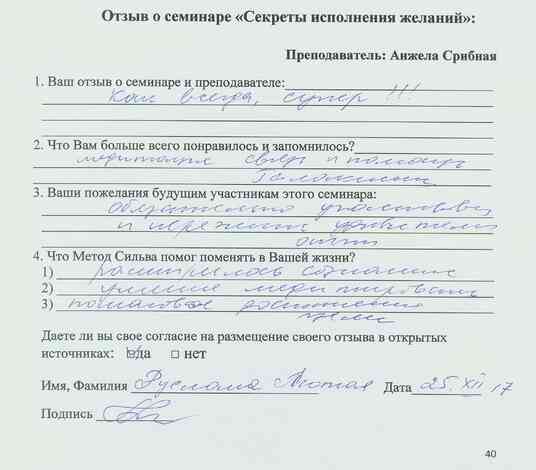 Отзыв о семинаре «Секреты исполнения желаний»:
Преподаватель: Анжела Срибная
1. Ваш отзыв о семинаре и преподавателе:
Как всегда, супер !!!
2. Что Вам больше всего понравилось и запомнилось?
медитация свер и помощь
3. Ваши пожелания будущим участникам этого семинара:
обязательно участвовать
и пережить
4. Что Метод Сильва помог поменять в Вашей жизни?
1) расширилось сознание
2) умение медитировать
3) пошаговое достижение
цели
Даете ли вы свое согласие на размещение своего отзыва в открытых
источниках: да нет
Имя, Фамилия Руслана Дата 25. XII 17
Подпись
40